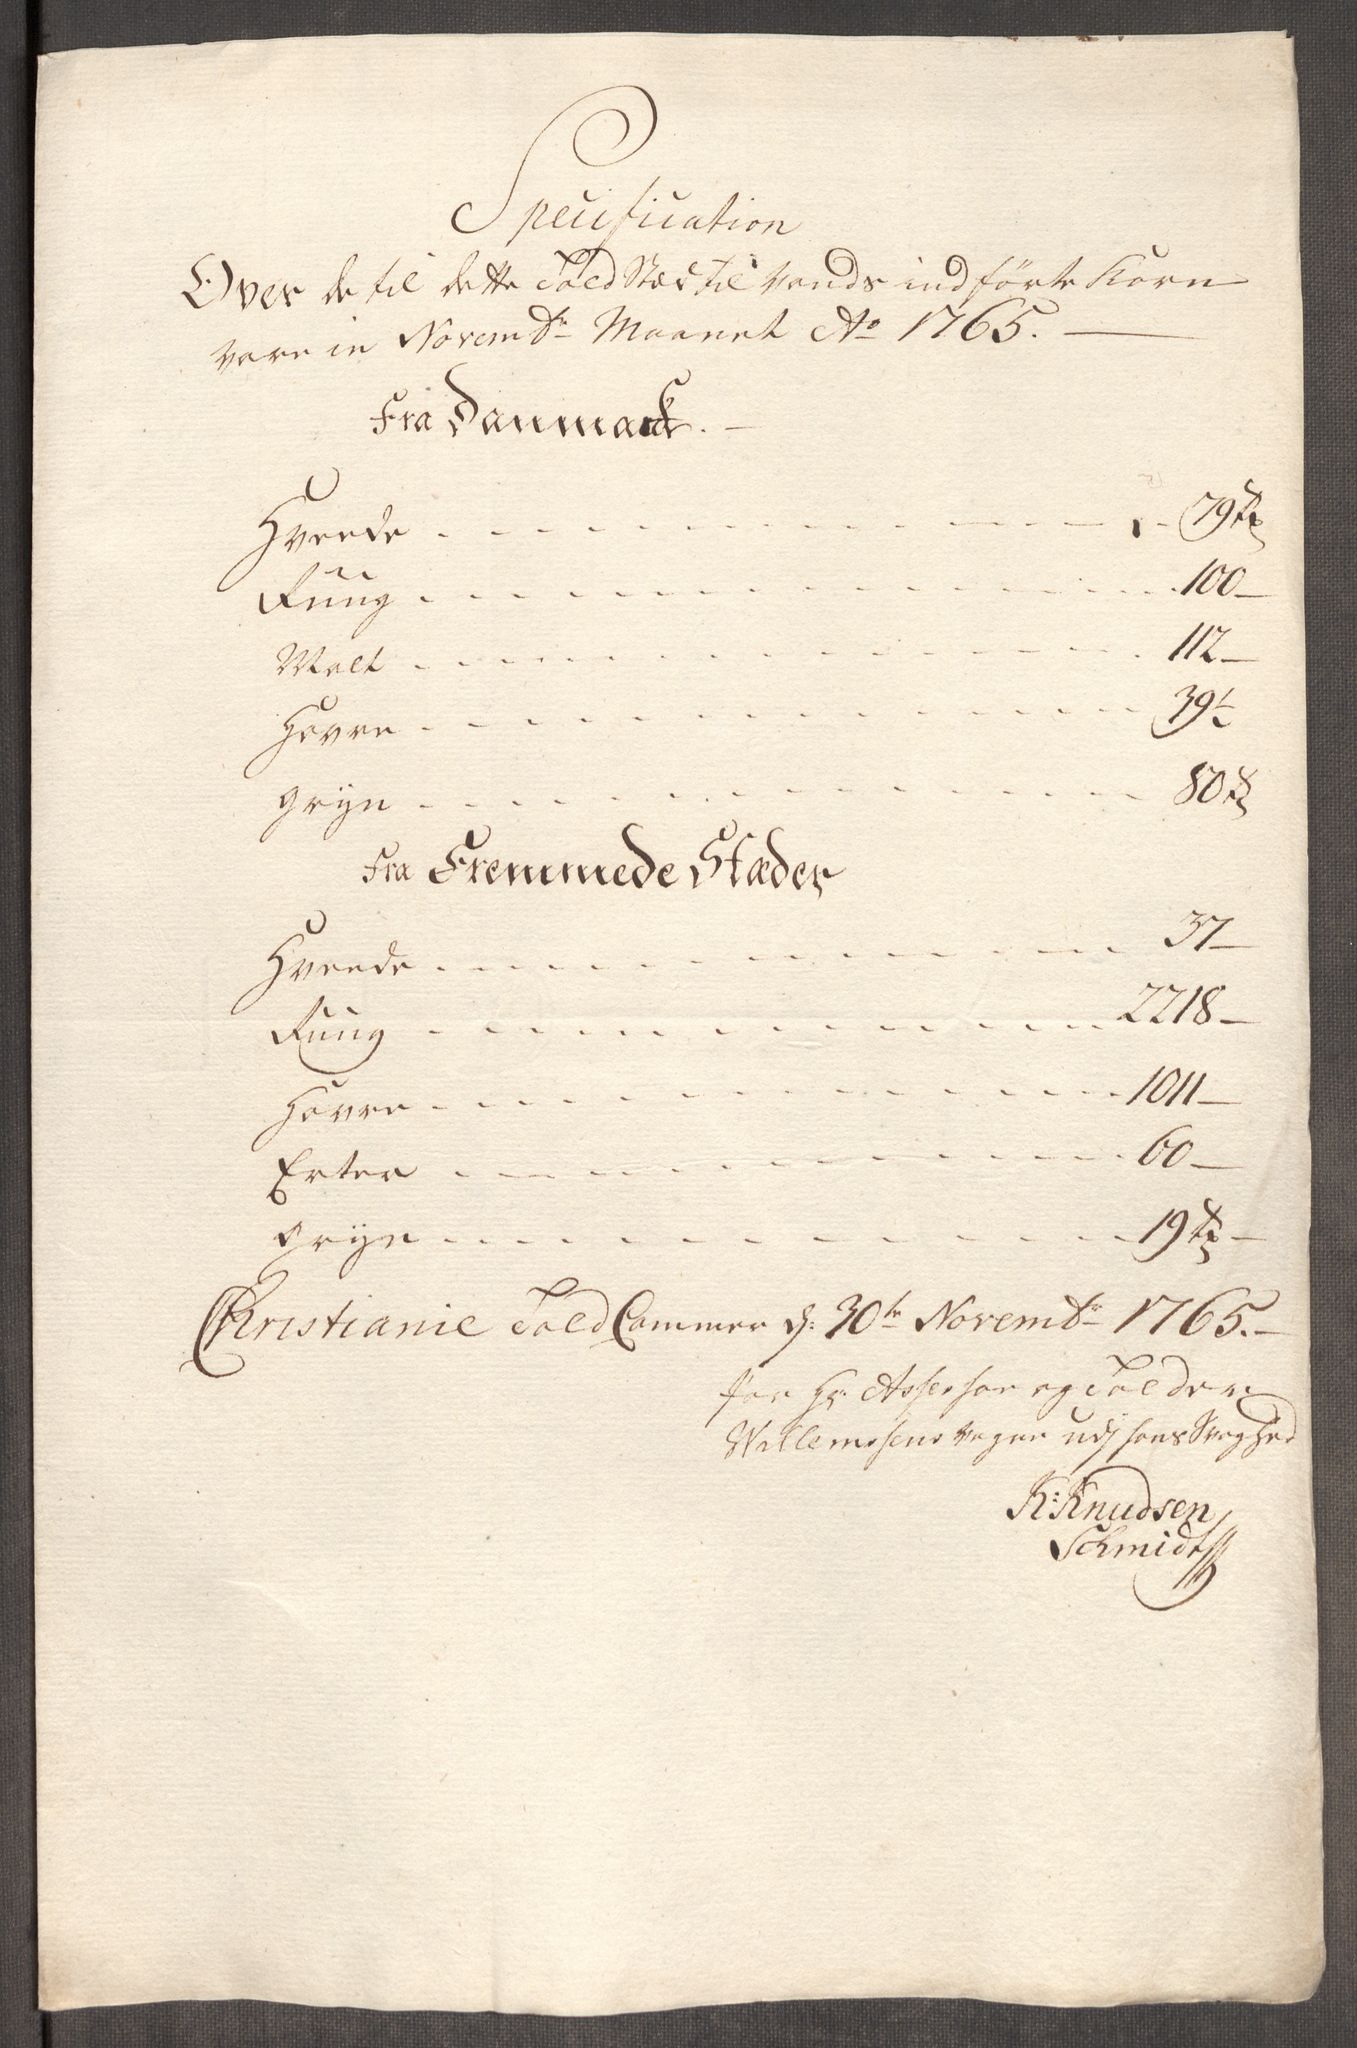 Specification
Over de til dette Told Stæd til Vands indførte Korn
vare in Novembr Maanet Ao 1765.
Fra Danmarck.
Hveede 79 Tr
Ruug 100
Malt 112
Havre 39½
Gryn 80 Tr
Fra Fremmede Stæder
Hveede 37
Ruug 2218
Havre 1011
Erter 60
Gryn 19 Tr
Christianie Told Cammer d: 30te Novembr 1765.
for Hr: Assessor og Tolder
Willemsens vegne udj hans Svaghed
K: Knudsen
Schmidt